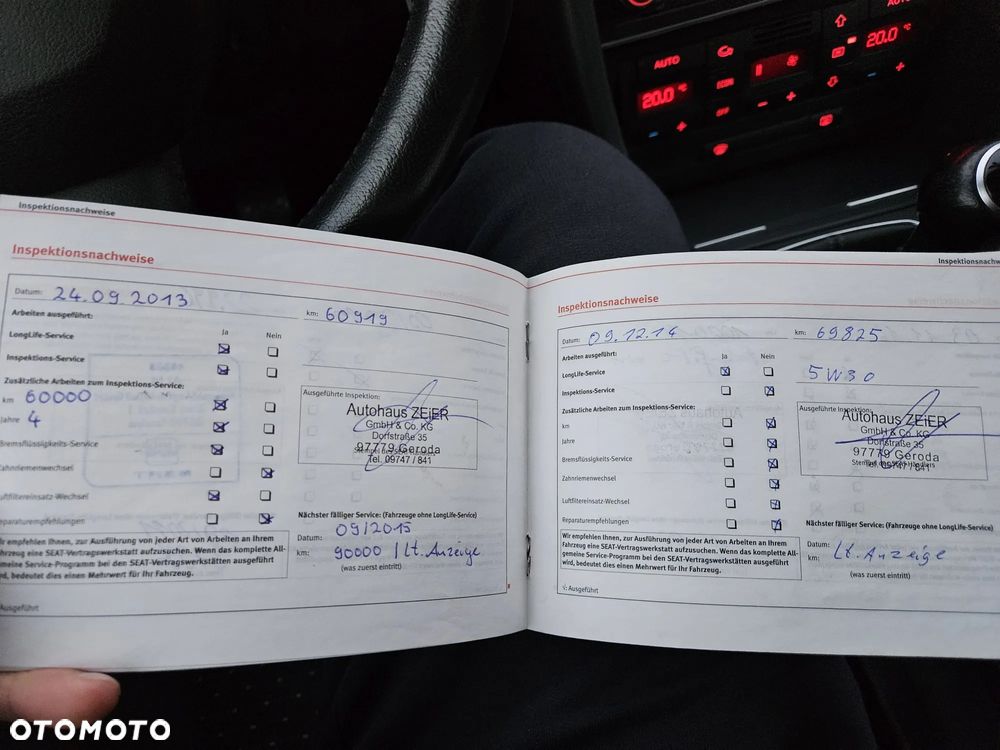 AUTO
AUTO
20.0 °C
20.0 °C
ECON
OFF
Inspektionsnachweise
Inspektionsnachweise
Datum: 24.09.2013
km: 60919
Arbeiten ausgeführt:
Ja Nein
LongLife-Service
Inspektions-Service
Zusätzliche Arbeiten zum Inspektions-Service:
km 60000
Jahre 4
Bremsflüssigkeits-Service
Zahnriemenwechsel
Luftfiltereinsatz-Wechsel
Reparaturempfehlungen
Ausgeführte Inspektion:
Autohaus ZEiER
GmbH & Co. KG
Dorfstraße 35
97779 Geroda
Tel. 09747 / 841
Nächster fälliger Service: (Fahrzeuge ohne LongLife-Service)
Datum: 09/2015
km: 90000 / Lt. Anzeige
(was zuerst eintritt)
Wir empfehlen Ihnen, zur Ausführung von jeder Art von Arbeiten an Ihrem
Fahrzeug eine SEAT-Vertragswerkstatt aufzusuchen. Wenn das komplette All-
gemeine Service-Programm bei den SEAT-Vertragswerkstätten ausgeführt
wird, bedeutet dies einen Mehrwert für Ihr Fahrzeug.
Ausgeführt
Inspektionsnachw
Inspektionsnachweise
Datum: 09.12.14
km: 69825
Arbeiten ausgeführt:
Ja Nein
LongLife-Service
5W30
Inspektions-Service
Zusätzliche Arbeiten zum Inspektions-Service:
km
Jahre
Bremsflüssigkeits-Service
Zahnriemenwechsel
Luftfiltereinsatz-Wechsel
Reparaturempfehlungen
Ausgeführte Inspektion:
Autohaus ZEiER
GmbH & Co. KG
Dorfstraße 35
97779 Geroda
Tel. 09747 / 841
Nächster fälliger Service: (Fahrzeuge ohne LongLife-Service)
Datum:
km: Lt. Anzeige
(was zuerst eintritt)
Wir empfehlen Ihnen, zur Ausführung von jeder Art von Arbeiten an Ihrem
Fahrzeug eine SEAT-Vertragswerkstatt aufzusuchen. Wenn das komplette All-
gemeine Service-Programm bei den SEAT-Vertragswerkstätten ausgeführt
wird, bedeutet dies einen Mehrwert für Ihr Fahrzeug.
√: Ausgeführt
OTOMOTO